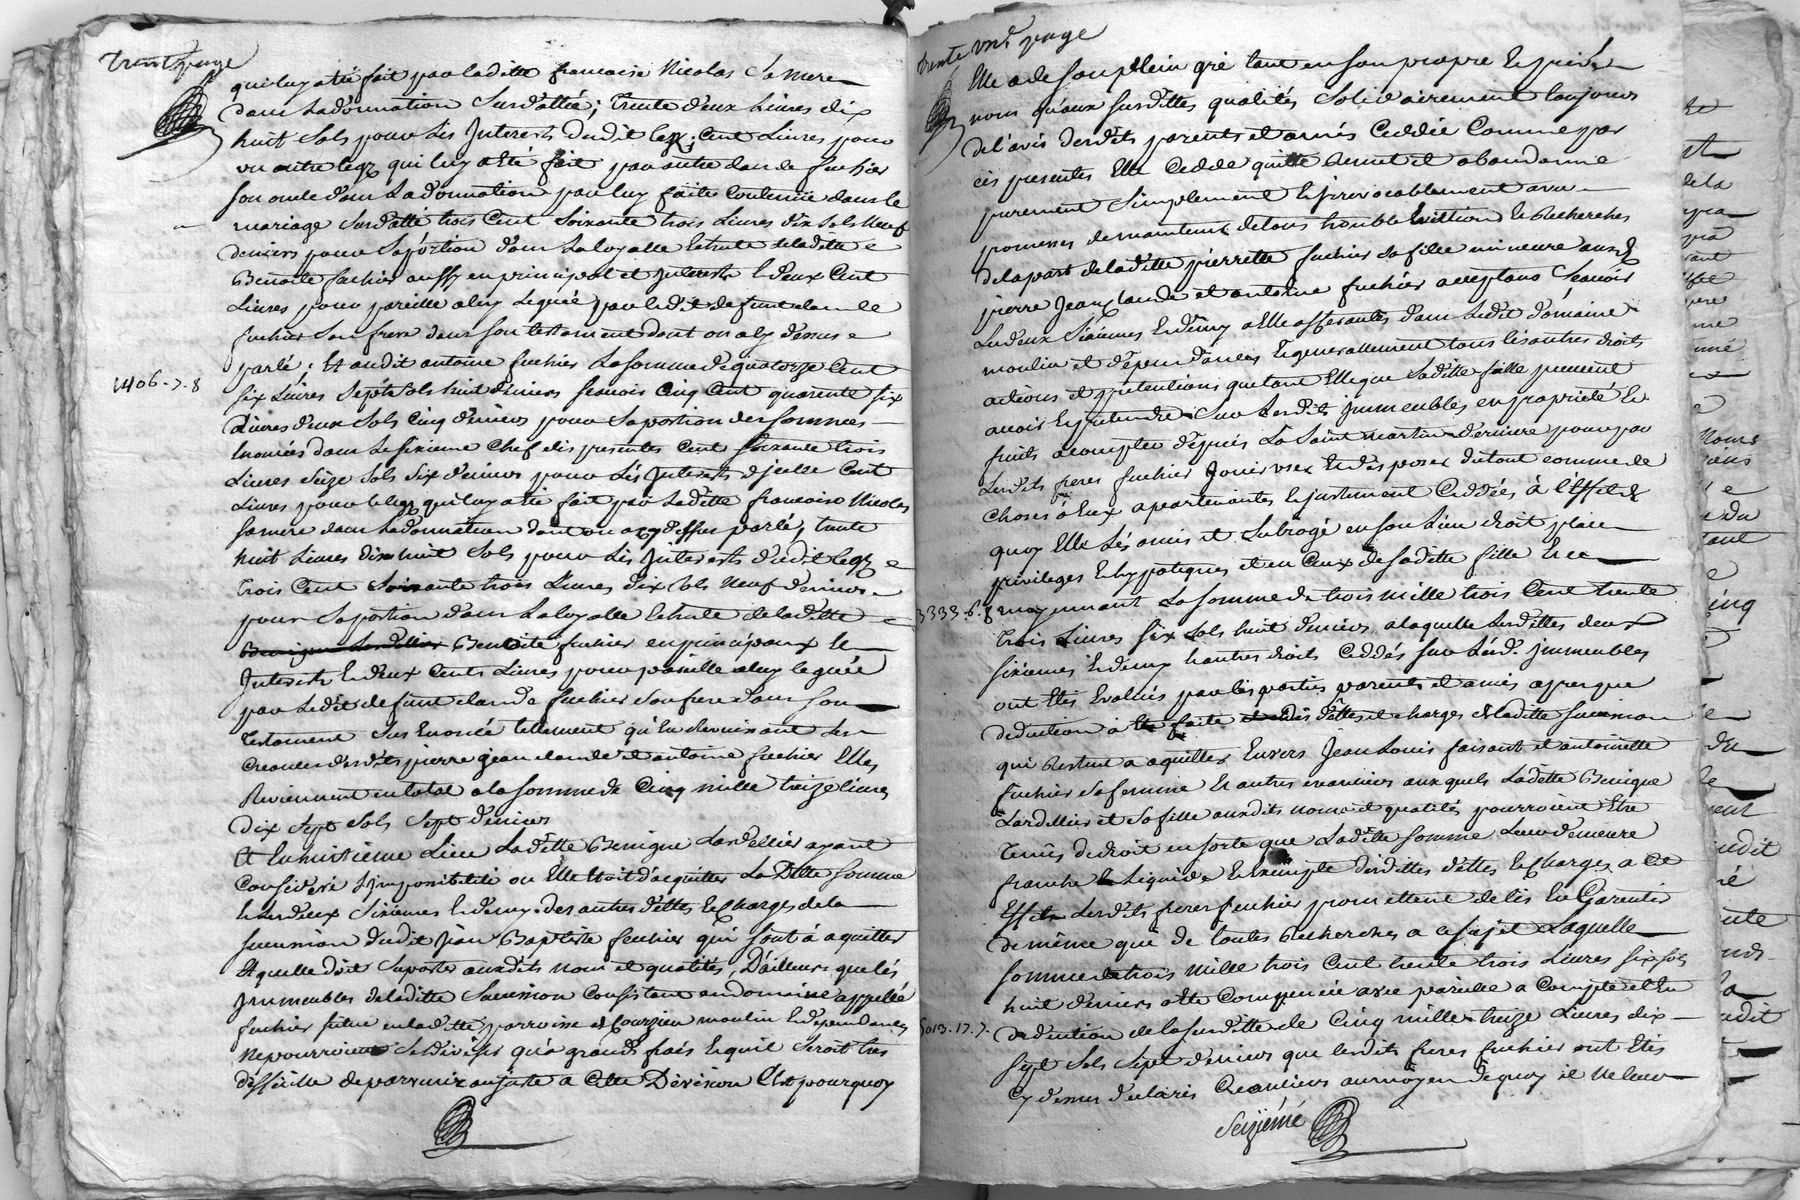 Trente page
qui luy a été fait par laditte francoise Nicolas Sa mere
dans la d'onnation Susd'attée; Trente d'eux Livres dix
huit Sols pour Les Interests dudit legz; Cent Livres pour
un autre legz qui luy a été fait par autre claude fuchier
son oncle dans La d'onnation par luy faite Contenüe dans le
mariage Susd'atté trois Cent Soixante trois Livres dix Sols Neuf
deniers pour Sa portion d'ans La loyalle echute de laditte
Benoite fuchier aussy en principal et Interests & d'eux Cent
Livres pour pareille a luy Leguée par ledit defunt claude
fuchier Son frere dans son testament dont on a cy d'essus
parlé; Et audit antoine fuchier La somme de quatorze Cent
1406-7-8
Six Livres Sept Sols huit d'eniers scavoir Cinq Cent quarente six
Livres d'eux Sols Cinq d'eniers pour Sa portion des sommes
enoncées dans Le sixieme Chef des presentes Cent Soixante trois
Livres Seize Sols Six d'eniers pour Les Interests d'jcelle Cent
Livres pour le legz qui luy a été fait par Laditte francoise Nicolas
Sa mere dans La donnation dont on a cy d'essus parlé, trente
huit Livres dix huit Sols pour Les Interests d'udit legz
trois Cent Soixante trois Livres dix Sols Neuf d'eniers
pour Sa portion d'ans La loyalle echute de laditte
Benoite fuchier en principaux et
Interests & d'eux Cents Livres pour pareille a luy leguée
par Ledit defunt claude fuchier Son frere dans Son
Testament Sus Enoncé tellement qu'en reunissant les
Creances desdits pierre jean claude et antoine fuchier Elles
Reviennent en total a la somme de Cinq mille treize livres
Dix Sept Sols Sept d'eniers
Et En huitieme Lieu Laditte Benigne Lardellier ayant
Consideré L'jmposibilité ou Elle Etoit d'acquitter La Ditte somme
& Les d'eux Sixiemes & d'emy des autres d'ettes & Charges de la
Sucession d'udit jean Baptiste fuchier qui Sont à aquitter
Et quelle doit Suporter auxdits nom et qualités, D'ailleurs que les
jmmeubles de laditte Sucession Consistant en domaine appellé
fuchier Situé en laditte parroisse de Courzieu moulin & dependances
Ne pourroient Se diviser qu'a grands frais & qu'il Seroit tres
difficille de parvenir au juste a Cette Division C'est pourquoy
Trente une page
Elle a de Son plein gré tant en son propre & privé
nom qu'aux susdittes qualités Solidairement toujours
de l'avis desdits parents et amis Ceddée Comme par
ces presentes Elle Cedde quitte Remet et abandonne
purement Simplement & jrrevocablement avec
promesses de maintenir de tous trouble Eviction & Recherches
de la part de laditte pierrette fuchier Sa fille mineure auxd.
pierre Jean Claude et antoine fuchier acceptans Scavoir
Les d'eux Sixiemes & d'emy a Elle afferantes dans Ledit d'omaine
moulin et d'ependances & generallement tous les autres droits
actions et pretentions que tant Elle que Saditte fille peuvent
avoir & pretendre Sur Lesdits jmmeubles en propriété &
fruits a compter d'epuis La Saint martin d'erniere pour par
Lesdits freres fuchier Jouir user & disposer du tout comme de
Choses à Eux apartenantes & justement Ceddées à l'Effet de
quoy Elle Les a mis et Subrogé en Son Lieu droit place
privileges & hypoteques et en Ceux de Saditte fille Et ce
3333-6-8
moyennant La somme de trois mille trois Cent trente
trois Livres Six Sols huit d'eniers a laquelle Lesdittes deux
Sixiemes & d'emy & autres droits Ceddés sur Lesd. jmmeubles
ont Etés Evalués par les parties parents et amis apres que
deduction à Eté faite des d'ettes et charges de laditte sucession
qui Restent a aquitter Envers Jean Louis faisant et antoinette
fuchier Sa femme & autres creanciers auxquels Laditte Benigne
Lardellier et Sa fille auxdits noms et qualités pourroient Etre
Tenües de droit en sorte que Laditte somme Leur d'emeure
franche & Liquide & Exempte desdittes d'ettes & Charges a Cet
Effet Lesdits freres fuchier promettent de les En Garentir
de même que de toutes Recherches a ce sujet Laquelle
somme de trois mille trois Cent trente trois Livres six sols
huit d'eniers a Eté Compensée avec pareille a Compte et En
5013-17-7
deduction de la susditte de Cinq mille treize Livres dix
Sept Sols Sept d'eniers que lesdits freres fuchier ont Etés
Cy d'essus declarés Creanciers au moyen de quoy il ne leur
Seizieme